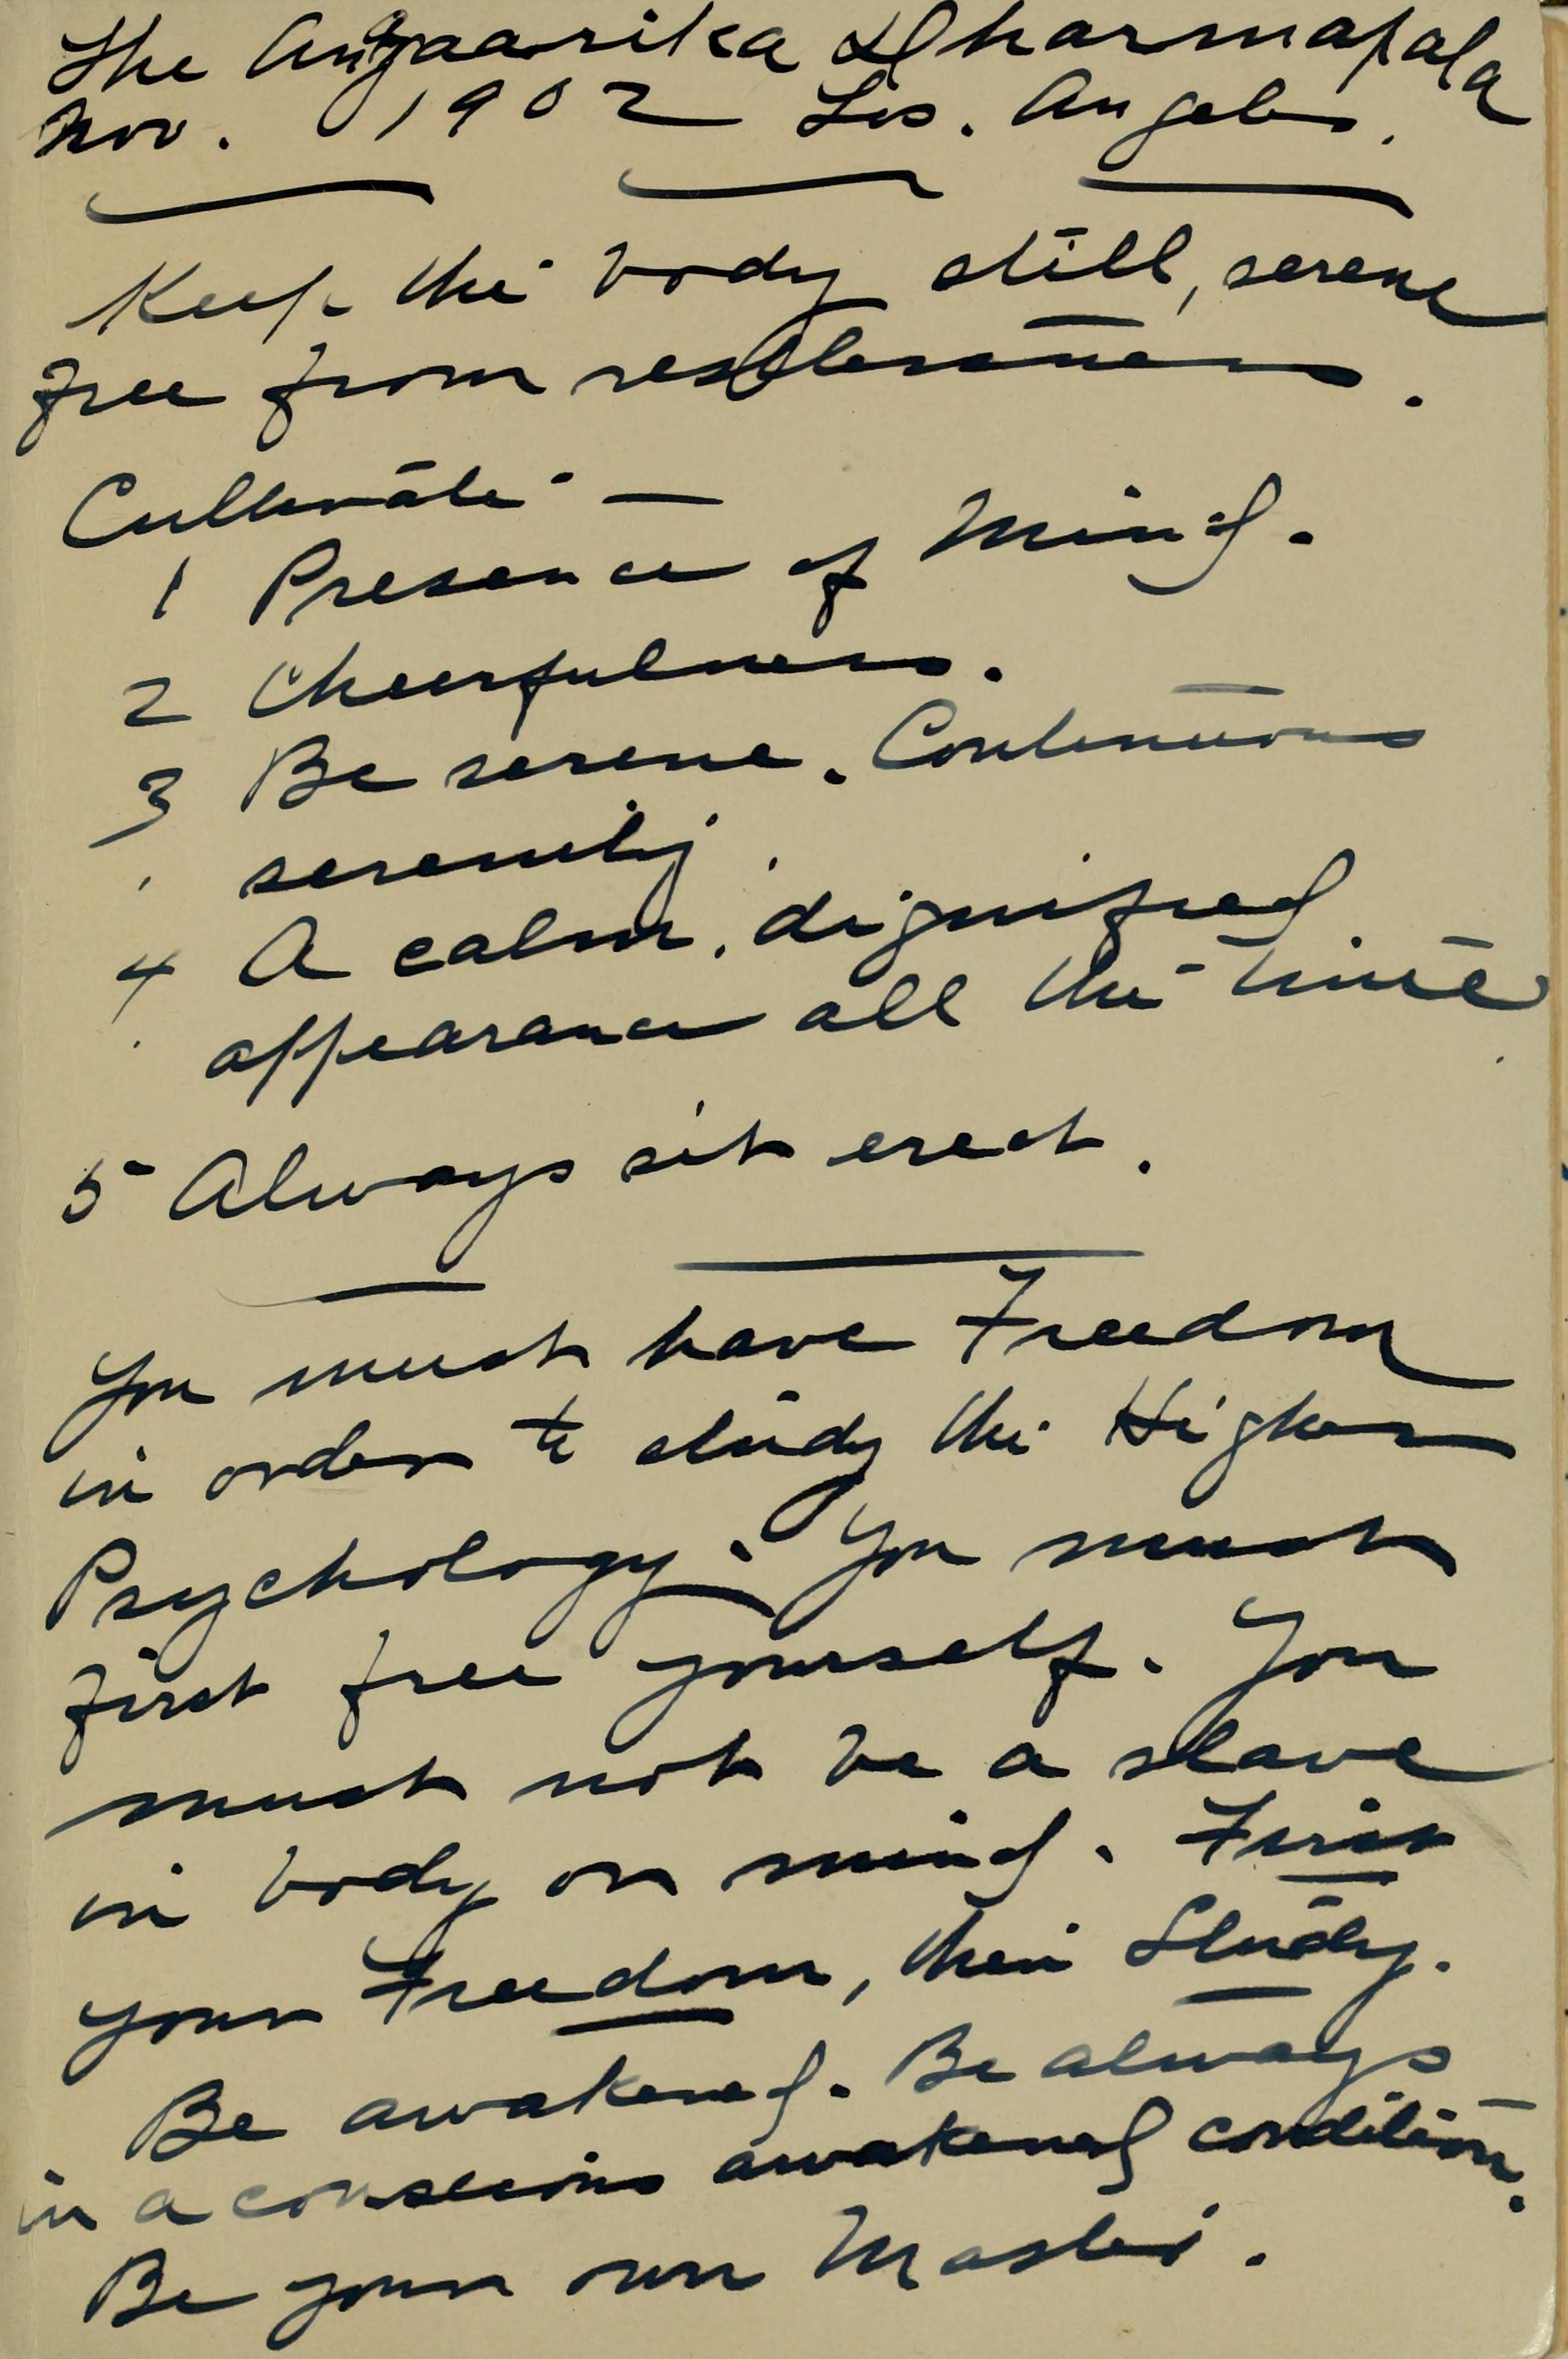 The Angaarika Dharmapala
Nov. 1902 Los. Angeles.
Keep the body still, serene
free from restlessness.
Cultivate —
1 Presence of Mind.
2 Cheerfulness.
3 Be serene. Continuous
serenity.
4 A calm, dignified
appearance all the time
5 Always sit erect.
You must have Freedom
in order to study the Higher
Psychology. You must
first free yourself. You
must not be a slave
in body or mind. First
your Freedom, then Study.
Be awakened. Be always
in a conscious awakened condition.
Be your own Master.